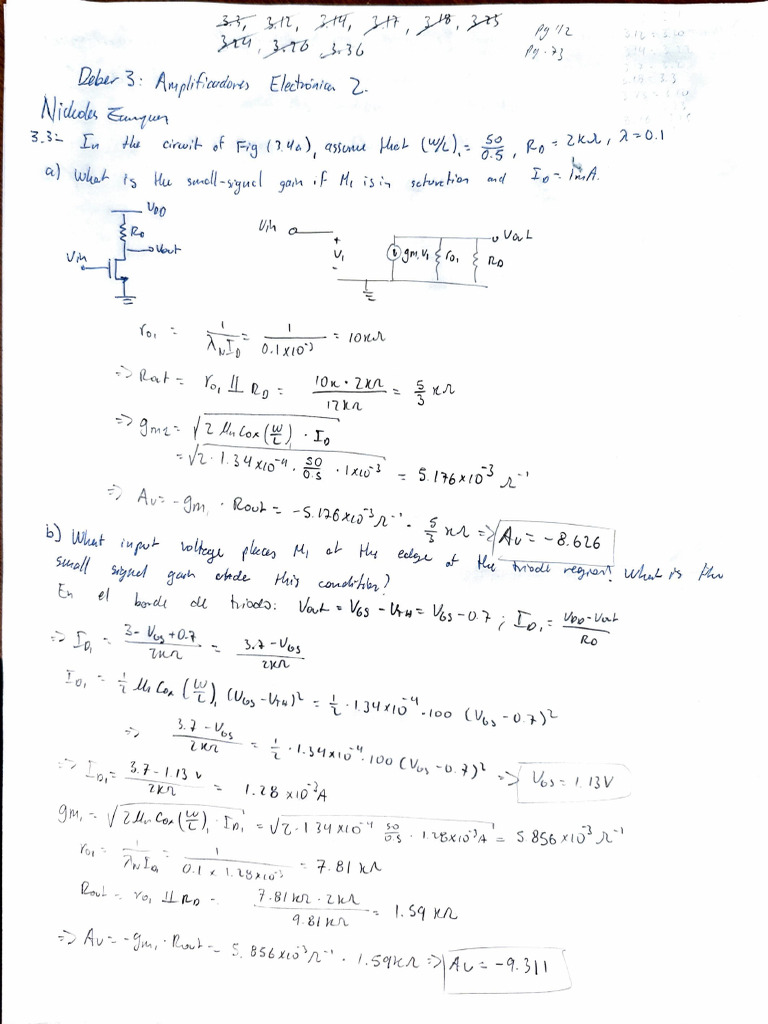 3.3, 3.12, 3.14, 3.17, 3.18, 3.25
3.24, 3.26, 3.36
Pg 42
Pg. 73
Deber 3: Amplificadores Electrónica 2.
Nicholas
3.3:- In the circuit of Fig (3.4a), assume that (W/L)₁ = 50/0.5, RD = 2kΩ, λ = 0.1
a) What is the small-signal gain if M₁ is in saturation and ID = 1mA.
VDD
RD
Vout
Vin
Vin
+
V₁
-
gm₁V₁
ro₁
RD
Vout
ro₁ = 1/(λN ID) = 1/(0.1x10⁻³) = 10kΩ
=> Rout = ro₁ || RD = (10k · 2kΩ)/12kΩ = 5/3 kΩ
=> gm₂ = √(2 μn Cox (W/L) · ID)
= √(2 · 1.34x10⁻⁴ · 50/0.5 · 1x10⁻³) = 5.176x10⁻³ Ω⁻¹
=> Av = -gm₁ · Rout = -5.176x10⁻³ Ω⁻¹ · 5/3 kΩ => Av = -8.626
b) What input voltage places M₁ at the edge of the triode region? What is the
small signal gain under this condition?
En el borde de triodo: Vout = VGS - VTH = VGS - 0.7 ; ID₁ = (VDD - Vout)/RD
=> ID₁ = (3 - VGS + 0.7)/2kΩ = (3.7 - VGS)/2kΩ
ID₁ = 1/2 μn Cox (W/L)₁ (VGS - VTH)² = 1/2 · 1.34x10⁻⁴ · 100 (VGS - 0.7)²
=> (3.7 - VGS)/2kΩ = 1/2 · 1.34x10⁻⁴ · 100 (VGS - 0.7)² => VGS = 1.13V
=> ID₁ = (3.7 - 1.13 v)/2kΩ = 1.28 x10⁻³A
gm₁ = √(2 μn Cox (W/L)₁ ID₁) = √(2 · 1.34x10⁻⁴ 50/0.5 · 1.28x10⁻³A) = 5.856x10⁻³ Ω⁻¹
ro₁ = 1/(λN ID) = 1/(0.1 x 1.28x10⁻³) = 7.81 kΩ
Rout = ro₁ || RD = (7.81kΩ · 2kΩ)/9.81kΩ = 1.59 kΩ
=> Av = -gm₁ · Rout = 5.856x10⁻³Ω⁻¹ · 1.59kΩ => Av = -9.311